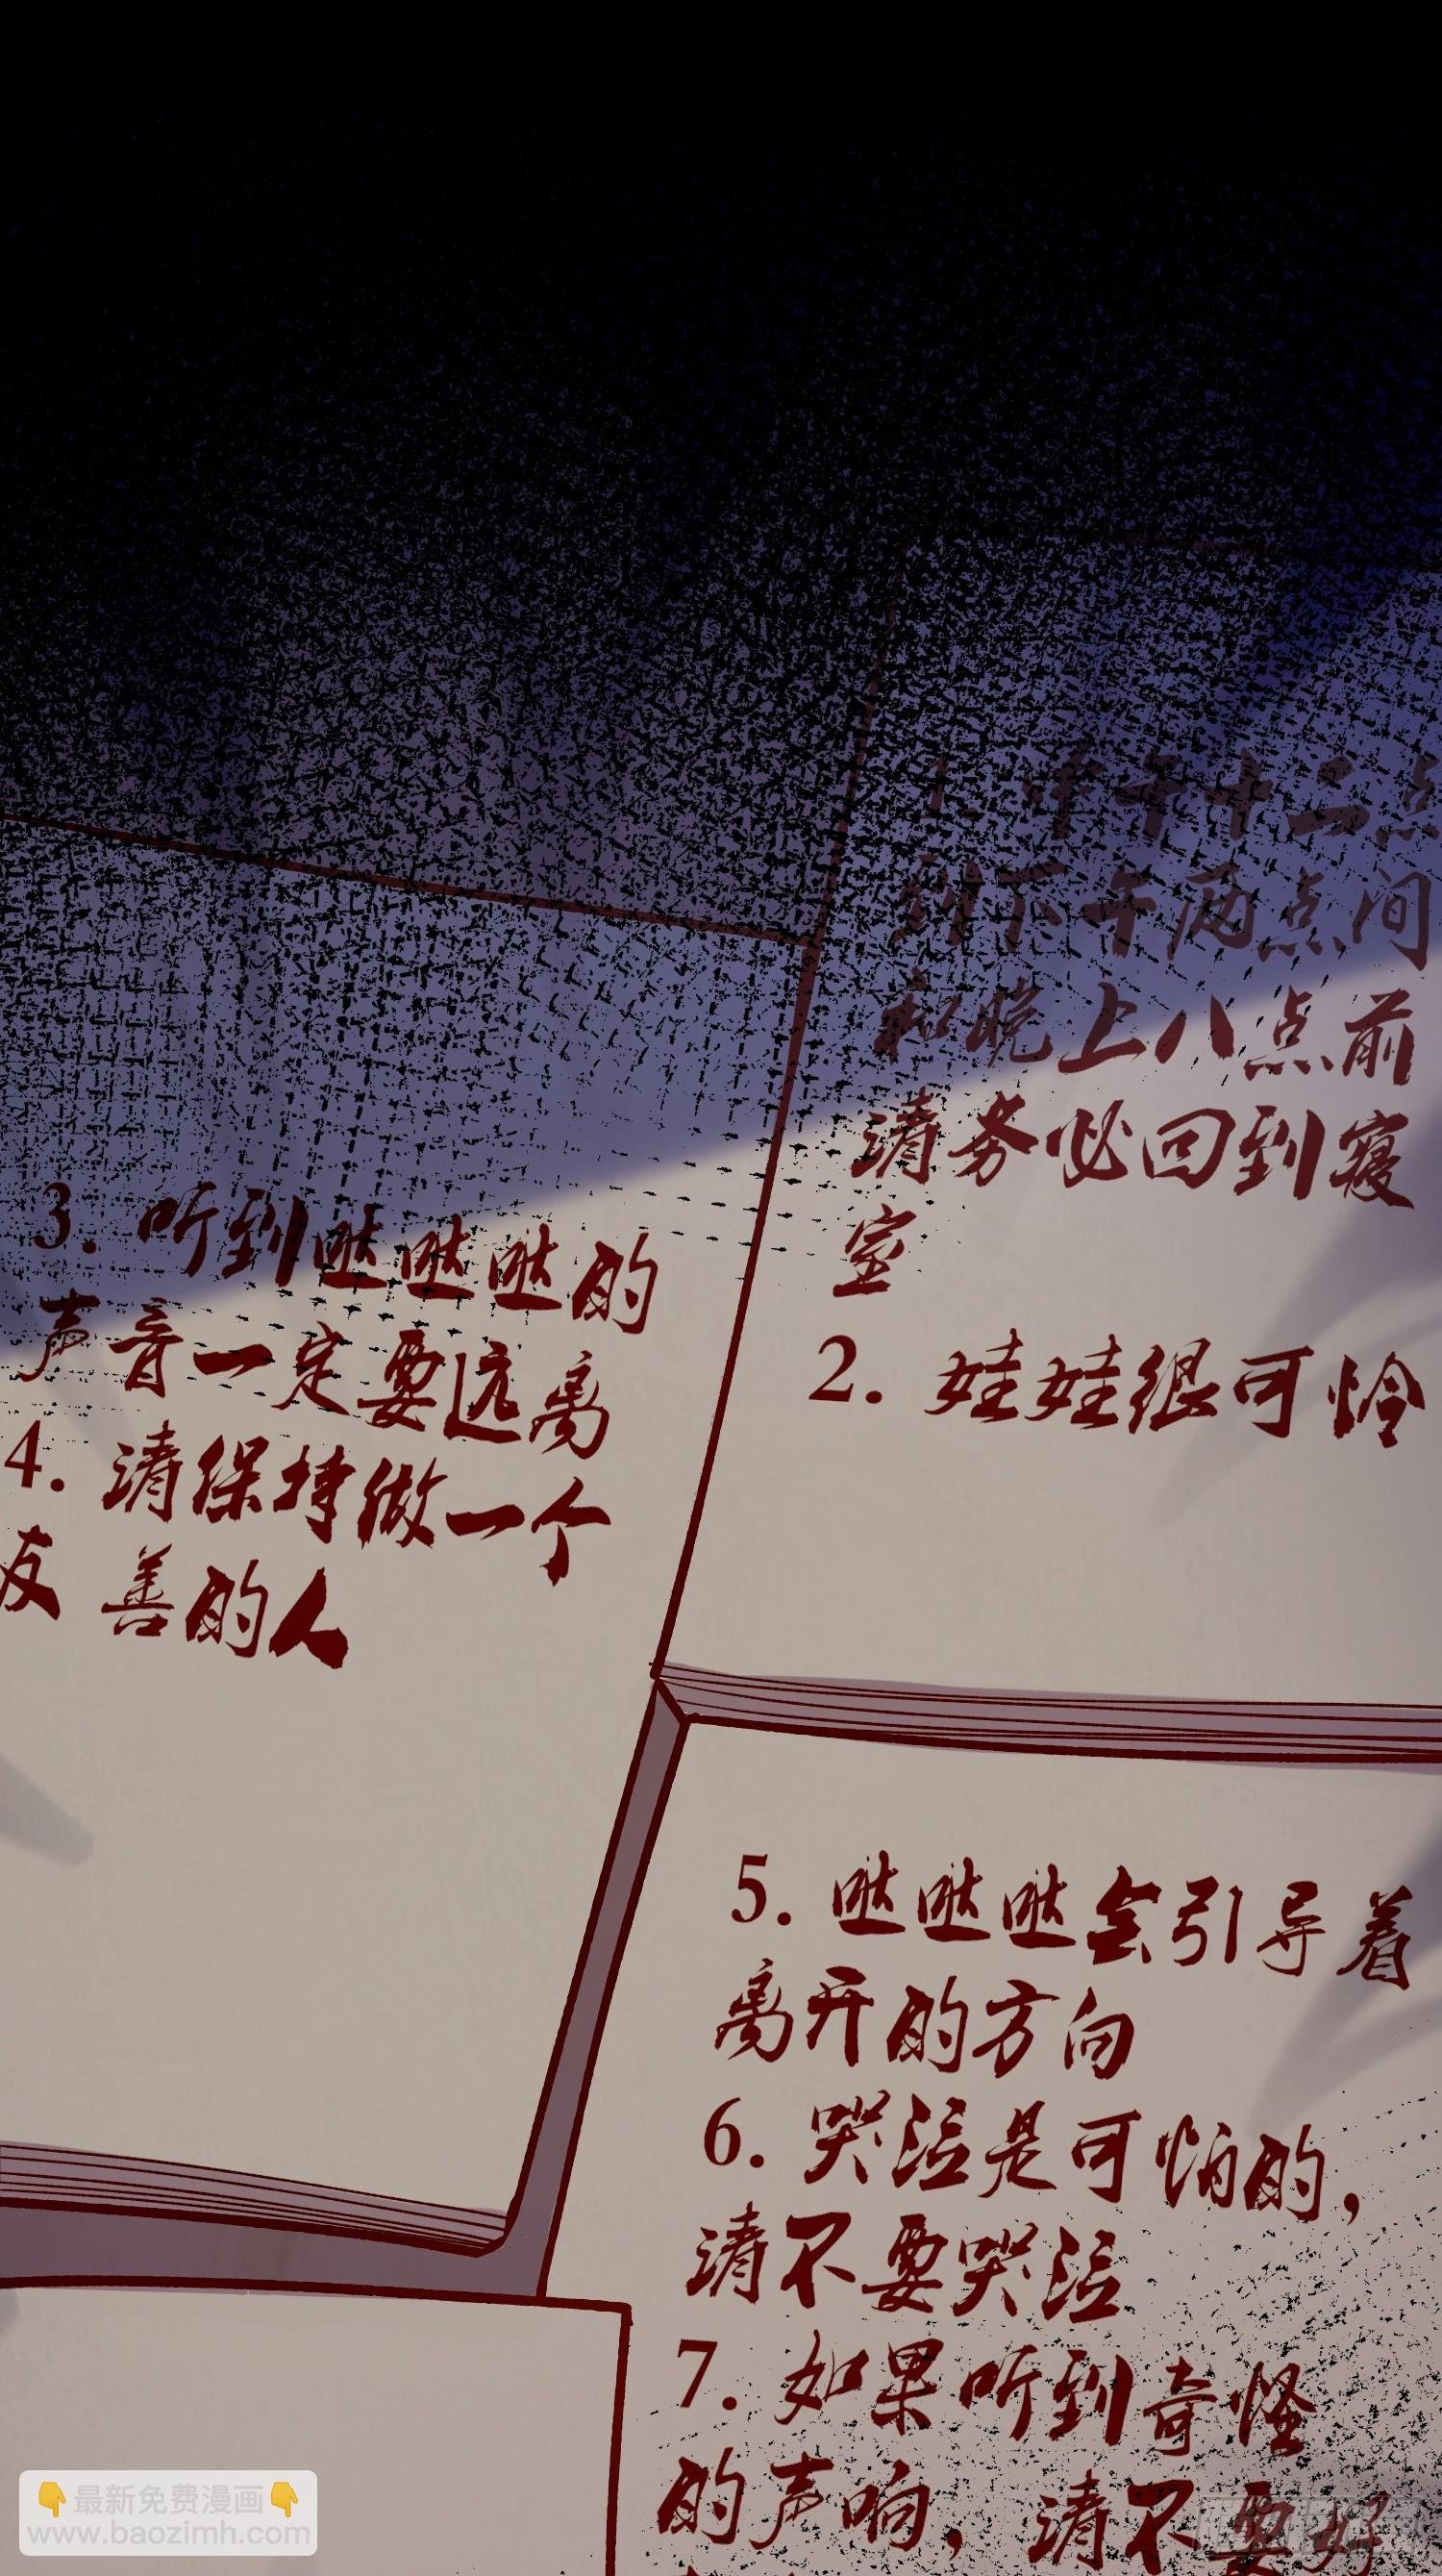 1. 中午十二点
到下午两点间
和晚上八点前
请务必回到寝
室
2. 娃娃很可怜
3. 听到哒哒哒的
声音一定要远离
4. 请保持做一个
友善的人
5. 哒哒哒会引导着
离开的方向
6. 哭泣是可怕的，
请不要哭泣
7. 如果听到奇怪
的声响，请不要好
👇最新免费漫画👇
www.baozimh.com